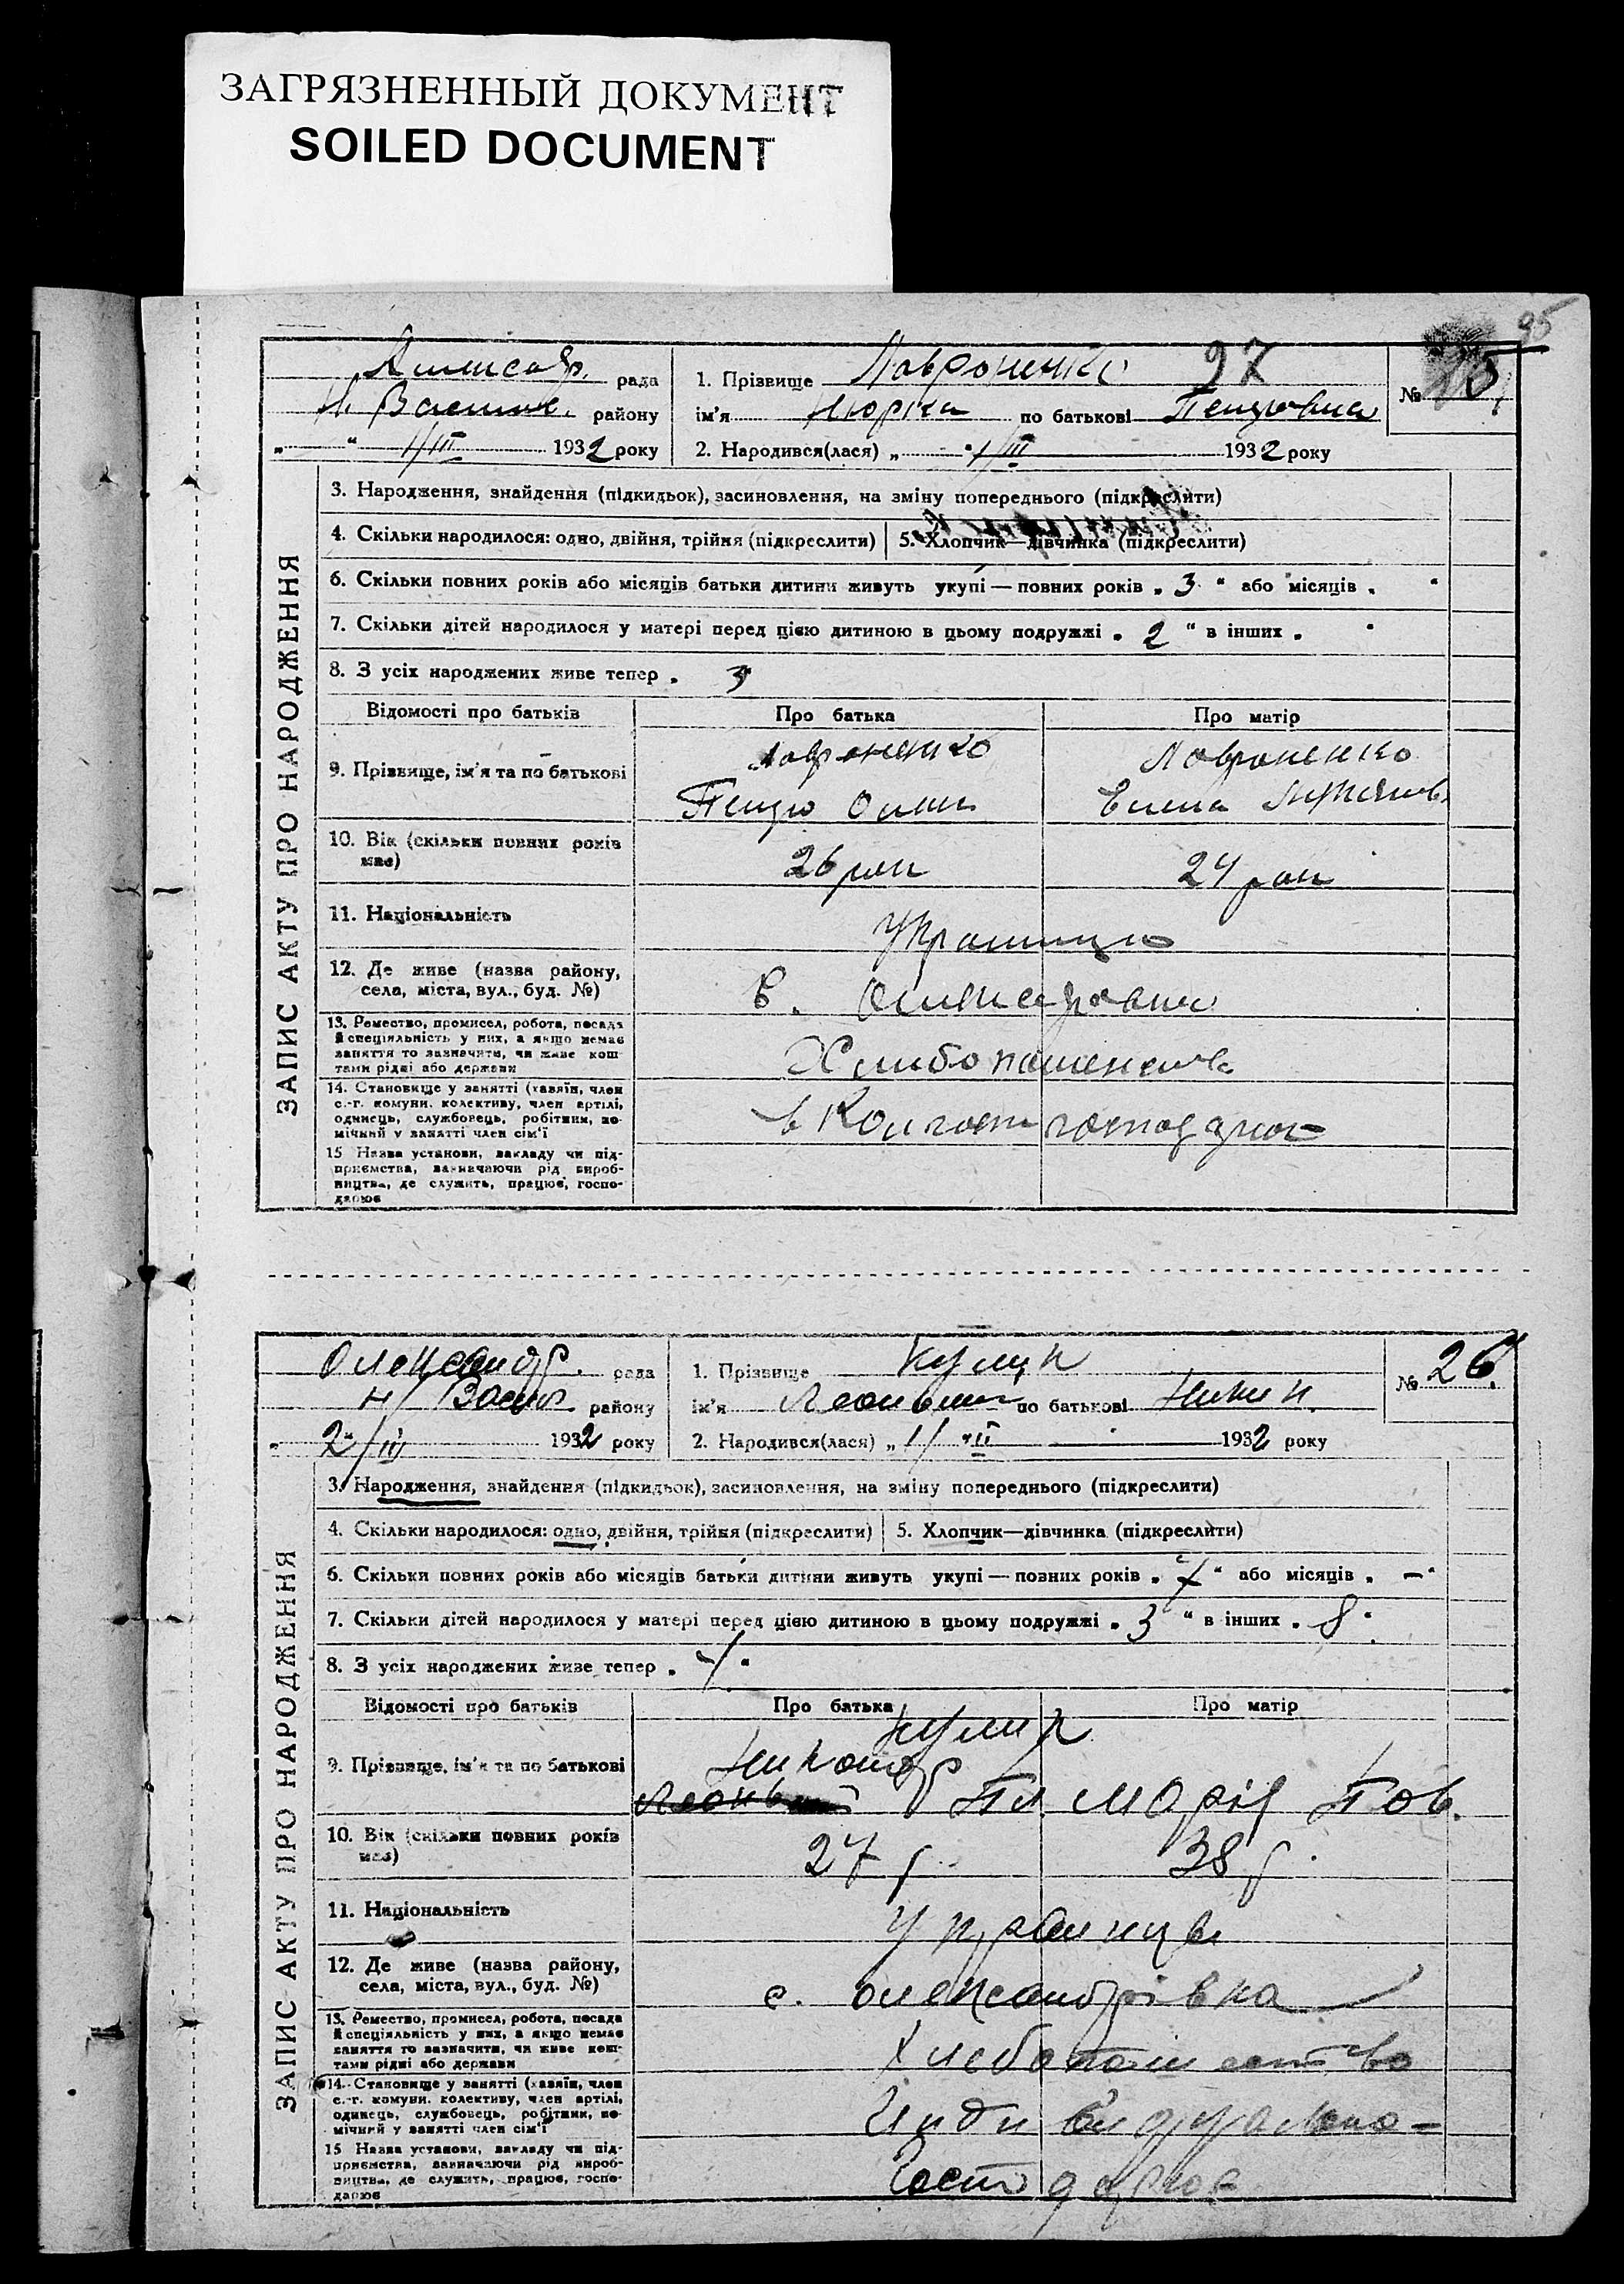 ЗАГРЯЗНЕННЫЙ ДОКУМЕНТ
SOILED DOCUMENT
95
рада
району
„ “ 1/III 1932 року
1. Прізвище Лавроненко 97
ім'я Нюрка по батькові Петровна
2. Народився(лася) „ “ 1/III 1932 року
№
ЗАПИС АКТУ ПРО НАРОДЖЕННЯ
3. Народження, знайдення (підкидьок), засиновлення, на зміну попереднього (підкреслити)
4. Скільки народилося: одно, двійня, трійня (підкреслити) 5. Хлопчик—дівчинка (підкреслити)
6. Скільки повних років або місяців батьки дитини живуть укупі — повних років „ 3 “ або місяців „ “
7. Скільки дітей народилося у матері перед цією дитиною в цьому подружжі „ 2 “ в інших „ “
8. З усіх народжених живе тепер „ 3
Відомості про батьків Про батька Про матір
9. Прізвище, ім'я та по батькові
Лавроненко Лавроненко
Петро Елена
10. Вік (скільки повних років має)
26 рок 24 рок
11. Національність
12. Де живе (назва району, села, міста, вул., буд. №)
13. Ремество, промисел, робота, посада й спеціяльність у них, а якщо немає заняття то зазначити, чи живе коштами рідні або держави
14. Становище у занятті (хазяїн, член с.-г. комуни, колективу, член артілі, одинець, службовець, робітник, помічний у занятті член сім'ї
15 Назва установи, закладу чи підприємства, зазначаючи рід виробництва, де служить, працює, господарює
Олександр. рада
Н/ Васил. району
„ 2/III 1932 року
1. Прізвище Кулик
ім'я по батькові Никан.
2. Народився(лася) „ 1/ “ II 1932 року
№ 26
ЗАПИС АКТУ ПРО НАРОДЖЕННЯ
3. Народження, знайдення (підкидьок), засиновлення, на зміну попереднього (підкреслити)
4. Скільки народилося: одно, двійня, трійня (підкреслити) 5. Хлопчик—дівчинка (підкреслити)
6. Скільки повних років або місяців батьки дитини живуть укупі — повних років „ 7 “ або місяців „ — “
7. Скільки дітей народилося у матері перед цією дитиною в цьому подружжі „ 3 “ в інших „ 8 “
8. З усіх народжених живе тепер „
Відомості про батьків Про батька Про матір
9. Прізвище, ім'я та по батькові
Кулик
Никандр
Пл. Марія Пав.
10. Вік (скільки повних років має)
27 р. 38 р.
11. Національність
Українців
12. Де живе (назва району, села, міста, вул., буд. №)
с. Олександрівка
13. Ремество, промисел, робота, посада й спеціяльність у них, а якщо немає заняття то зазначити, чи живе коштами рідні або держави
14. Становище у занятті (хазяїн, член с.-г. комуни, колективу, член артілі, одинець, службовець, робітник, помічний у занятті член сім'ї
15 Назва установи, закладу чи підприємства, зазначаючи рід виробництва, де служить, працює, господарює
Господарює